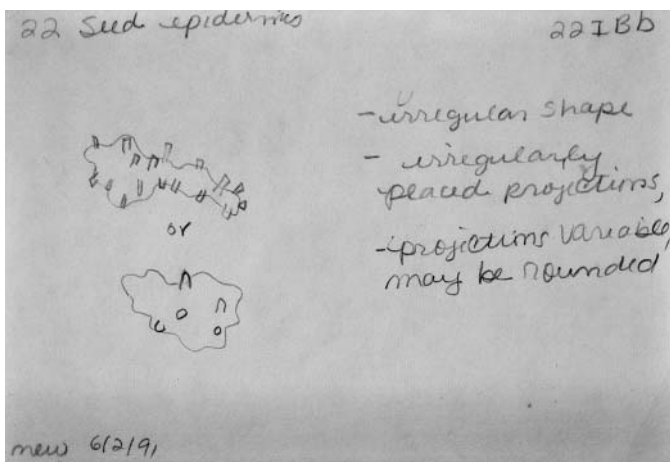 22 Seed epidermis
22IBb
- irregular shape
- irregularly
placed projections,
or
- projections variable,
may be rounded
new 6/2/91